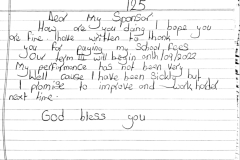 125
Dear My Sponsor
How are you doing I hope you
are fine. I have written to thank
you for paying my school fees
Our term III will begin on th/09/2022
My performance has not been very
Well cause I have been Sickly but
I promise to improve and work harder
next time.
God bless you